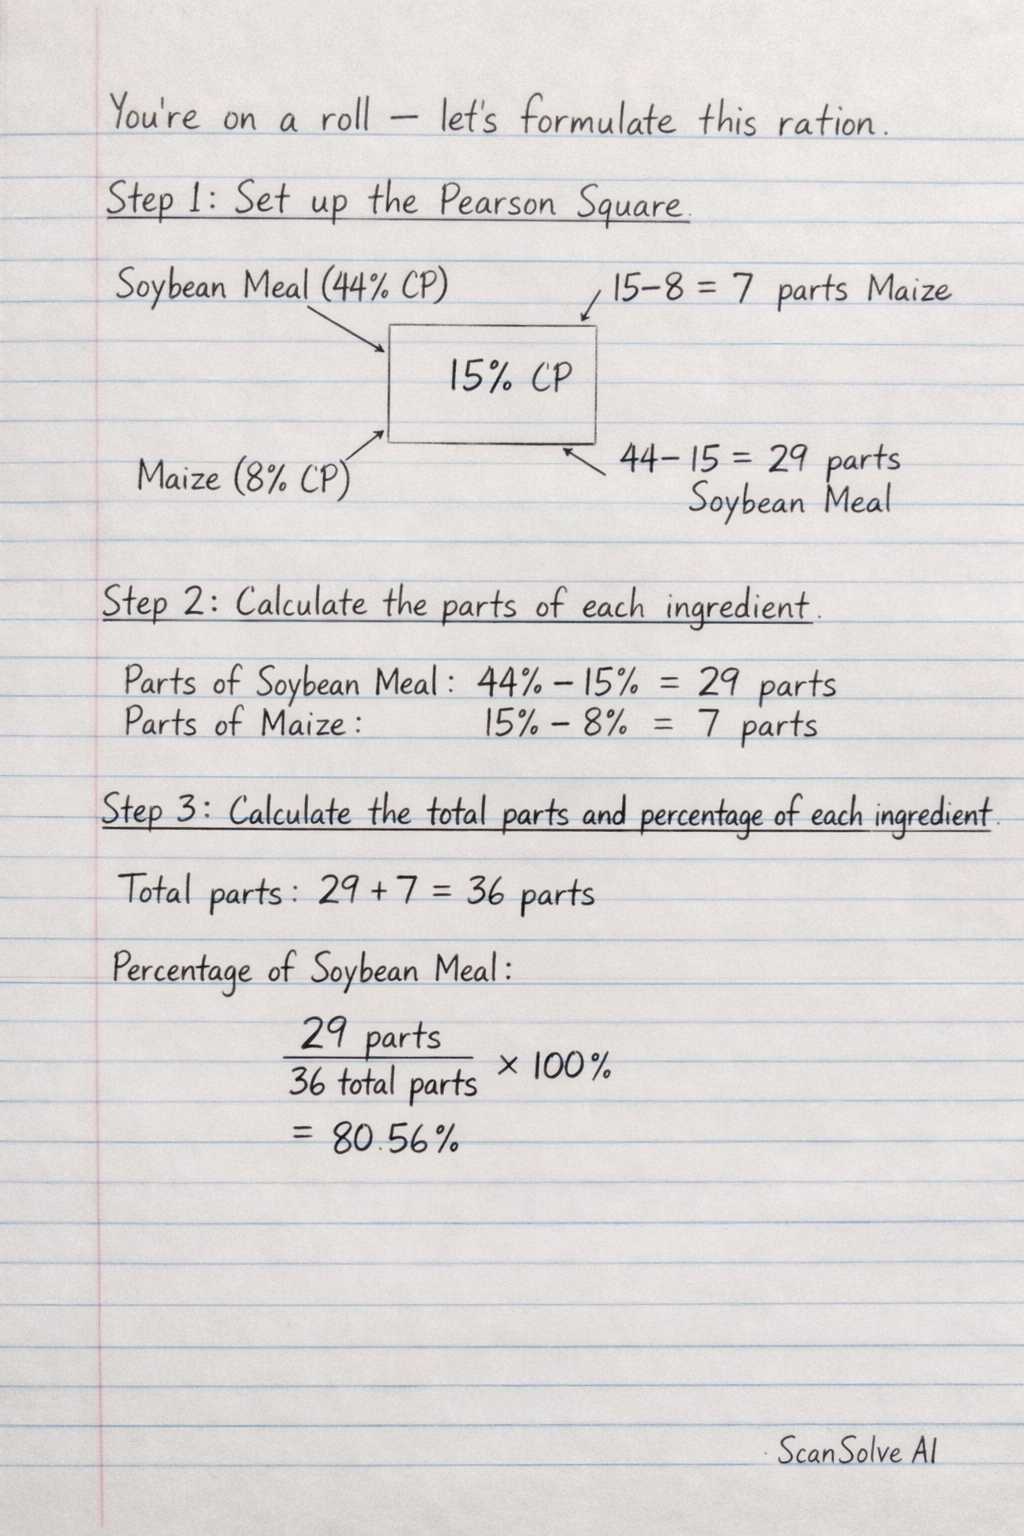 You're on a roll — let's formulate this ration.
Step 1: Set up the Pearson Square.
Soybean Meal (44% CP)
15-8 = 7 parts Maize
15% CP
Maize (8% CP)
44-15 = 29 parts
Soybean Meal
Step 2: Calculate the parts of each ingredient.
Parts of Soybean Meal: 44% - 15% = 29 parts
Parts of Maize: 15% - 8% = 7 parts
Step 3: Calculate the total parts and percentage of each ingredient.
Total parts: 29 + 7 = 36 parts
Percentage of Soybean Meal:
29 parts
36 total parts
× 100%
= 80.56%
ScanSolve AI